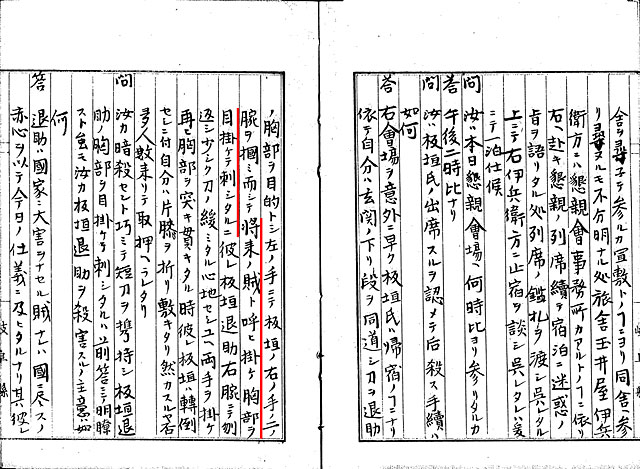 舎ヲ尋子テ参ルカ宜敷トノコニヨリ同舎ニ参
リ尋ヌルモ不分明ナル処旅舎玉井屋伊兵
衛方ニハ懇親會事務所カアルトノコニ依リ
右ニ赴キ懇親ノ列席續キ宿泊ニ迷惑ノ
旨ヲ語リタル処列席ノ鑑札ヲ渡シ呉レタレハ
上ニテ右伊兵衛方ニ止宿ヲ談シ呉レタレハ
ニテ一泊仕候
問 汝ハ本日懇親會場ヘ何時比ヨリ参リタルカ
答 午後一時比ナリ
問 汝ハ板垣氏ノ出席スルヲ認メテ后殺ス手續ハ
如何
答 右會場ヲ意外ニ早ク板垣氏ハ帰宿ノコニナリ
依テ自分ハ玄関ノ下リ段ヲ同道シ刀ヲ退助
ノ胸部ヲ目的トシ左ノ手ニテ板垣ノ右ノ手ニノ
腕ヲ掴ミ而シテ将来ノ賊ト呼ヒ掛ケ胸部ヲ
目掛ケテ刺シタルニ彼レ板垣退助右腕ニテ刎
返シ少シク刀ノ緩ミタル心地セシユヘ両手ヲ掛ケ
再ヒ胸部ヲ突キ貫キタル時彼レ板垣ハ轉倒
セシニ付自分ハ片膝ヲ折リ敷キタリ然カスルヤ否
多人数来リテ取押ヘラレタリ
問 汝カ暗殺セント巧ミテ短刀ヲ携持シ板垣退
助ノ胸部ヲ目掛ケテ刺シタルハ前答ニテ明瞭
スト雖モ汝カ板垣退助ヲ殺害スルノ主意ハ如
何
答 退助ハ國家ニ大害ヲナセル賊ナレハ國ニ尽スノ
赤心ヲ以テ今日ノ仕義ニ及ヒタルナリ其彼レ